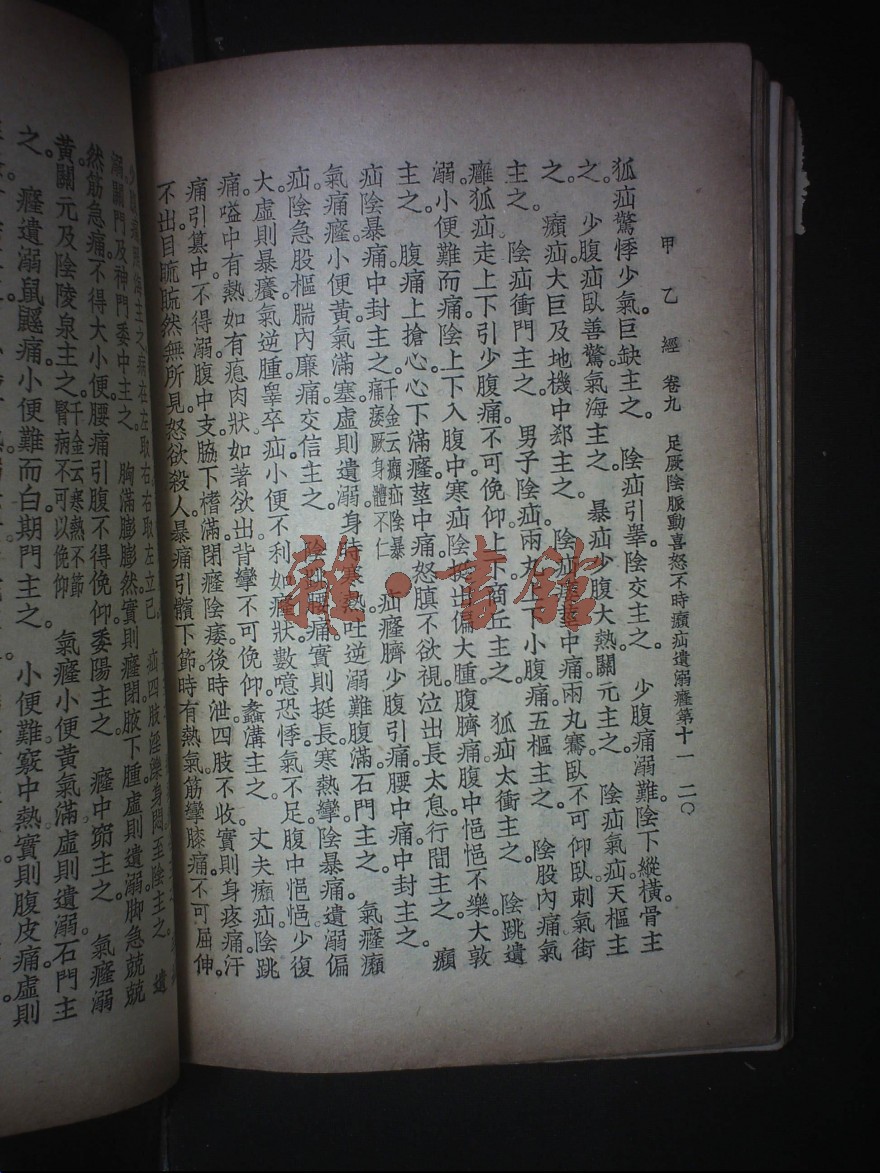 甲乙經 卷九 足厥陰脈動喜怒不時癲疝遺溺癃第十一 二〇
狐疝驚悸少氣巨缺主之。 陰疝引睾陰交主之。 少腹痛溺難陰下縱橫骨主
之。 少腹疝臥善驚氣海主之。 暴疝少腹大熱關元主之。 陰疝氣疝天樞主
之。 癩疝大巨及地機中郄主之。 陰疝痿莖中痛兩丸騫臥不可仰臥刺氣街
主之。 陰疝衝門主之。 男子陰疝兩丸上下小腹痛五樞主之。 陰股內痛氣
癰狐疝走上下引少腹痛不可俛仰上下商丘主之。 狐疝太衝主之。 陰跳遺
溺小便難而痛陰上下入腹中寒疝陰挺出偏大腫腹臍痛腹中悒悒不樂大敦
主之。 腹痛上搶心心下滿癃莖中痛怒瞋不欲視泣出長太息行間主之。 癩
疝陰暴痛中封主之。千金云癩疝陰暴痛痿厥身體不仁 疝癃臍少腹引痛腰中痛中封主之。 氣癃癩
氣痛癃小便黃氣滿塞虛則遺溺身時寒熱吐逆溺難腹滿石門主之。
疝陰急股樞腨內廉痛交信主之。 陰跳腰痛實則挺長寒熱攣陰暴痛遺溺偏
大虛則暴癢氣逆腫睾卒疝小便不利如癃狀數噫恐悸氣不足腹中悒悒少復
痛嗌中有熱如有瘜肉狀如著欲出背攣不可俛仰蠡溝主之。 丈夫癩疝陰跳
痛引篡中不得溺腹中支脇下榰滿閉癃陰痿後時泄四肢不收實則身疼痛汗
不出目䀮䀮然無所見怒欲殺人暴痛引髕下節時有熱氣筋攣膝痛不可屈伸。
主之病在左取右右取左立已。 疝四肢淫濼身悶至陰主之 遺
溺關門及神門委中主之。 胸滿膨膨然實則癃閉腋下腫虛則遺溺脚急兢兢
然筋急痛不得大小便腰痛引腹不得俛仰委陽主之 癃中窌主之。 氣癃溺
黃關元及陰陵泉主之。千金云寒熱不節腎病不可以俛仰 氣癃小便黃氣滿虛則遺溺石門主
之。 癃遺溺鼠鼷痛小便難而白期門主之。 小便難竅中熱實則腹皮痛虛則
雜·書館